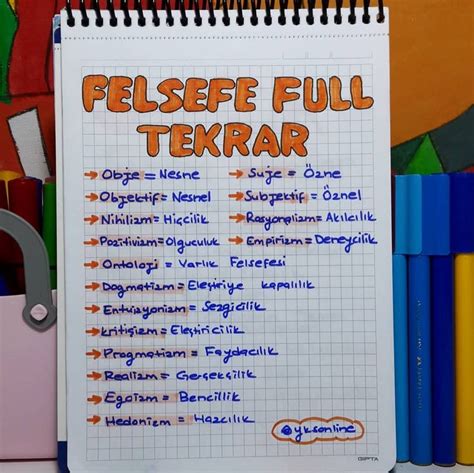 FELSEFE FULL
TEKRAR
→ Obje = Nesne → Suje = Özne
→ Objektif = Nesnel → Subjektif = Öznel
→ Nihilizm = Hiçcilik → Rasyonalizm = Akılcılık
→ Pozitivizm = Olguculuk → Empirizm = Deneycilik
→ Ontoloji = Varlık Felsefesi
→ Dogmatizm = Eleştiriye kapalılık
→ Entüisyonizm = Sezgicilik
→ Kritisizm = Eleştiricilik
→ Pragmatizm = Faydacılık
→ Realizm = Gerçekçilik
→ Egoizm = Bencillik
→ Hedonizm = Hazcılık
@yksonline
GIPTA